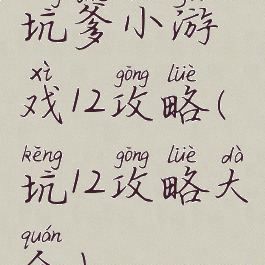 坑爹小游
xì gōng lüè
戏12攻略(
kēng gōng lüè dà
坑12攻略大
quán
全)